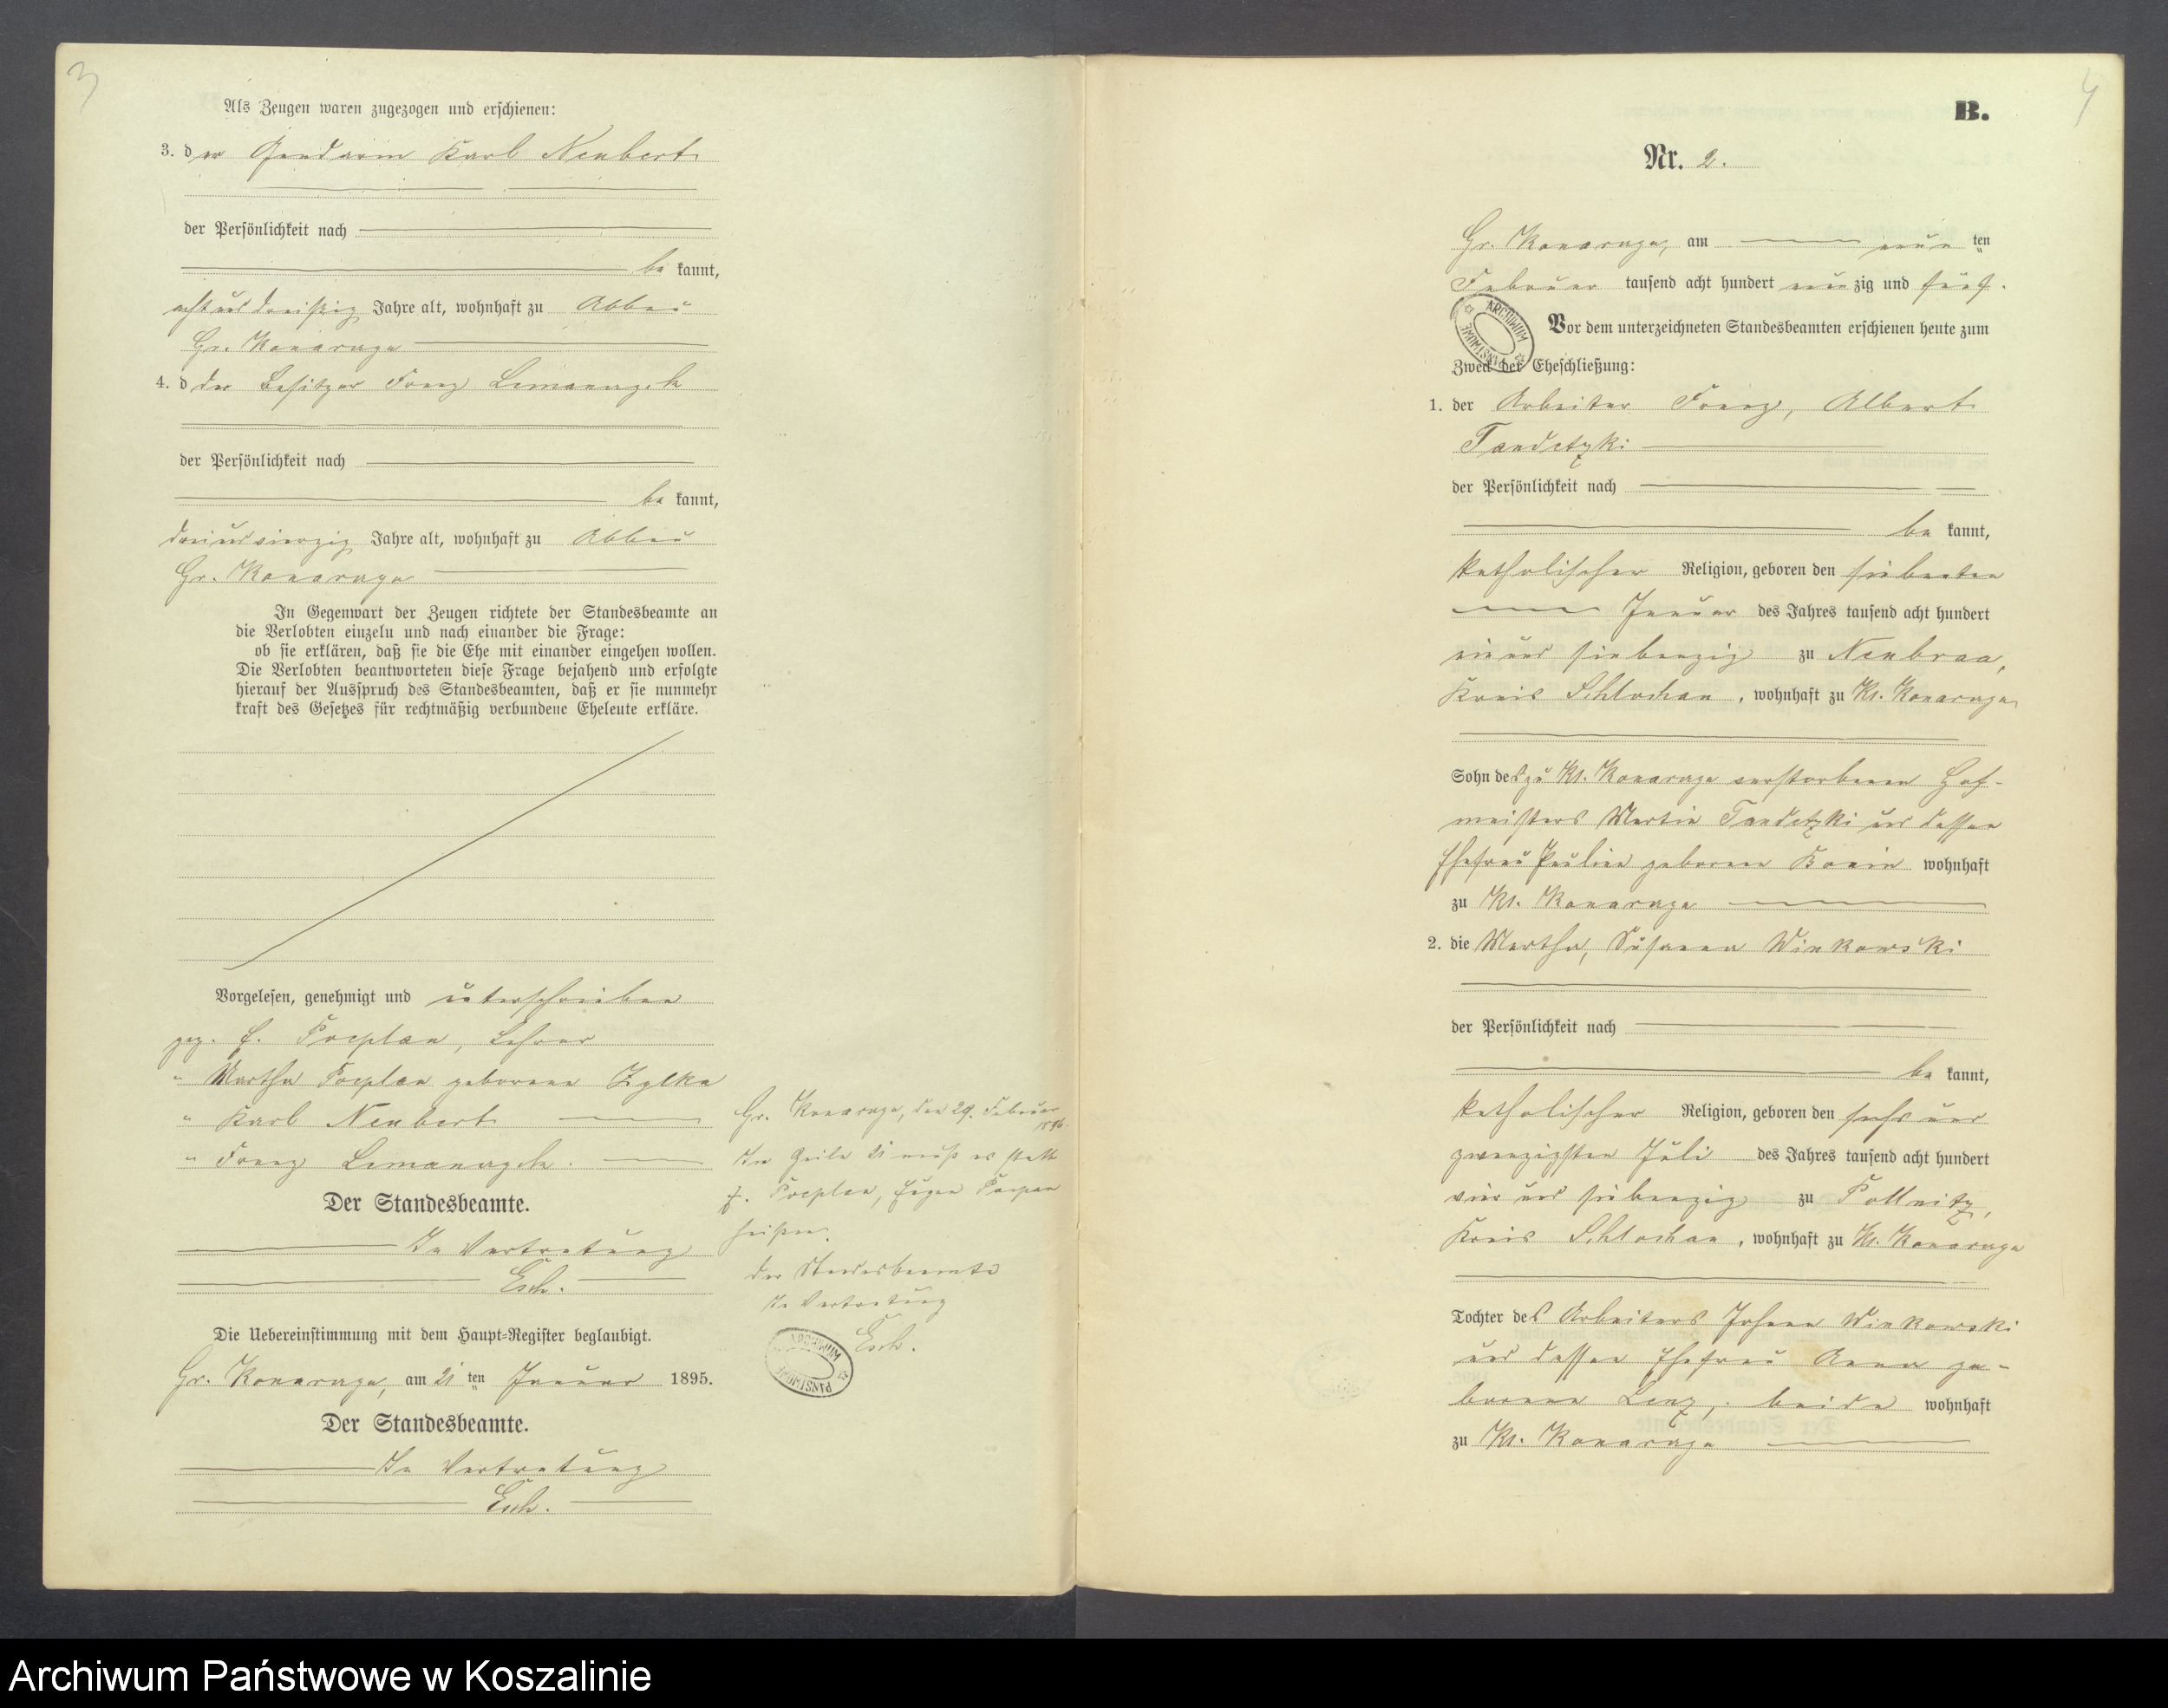 3
Als Zeugen waren zugezogen und erschienen:
3. der Gendarm Karl Neubert
der Persönlichkeit nach
be kannt,
acht und dreißig Jahre alt, wohnhaft zu Abbau
Gr. Konarage
4. d der Besitzer Franz
der Persönlichkeit nach
be kannt,
drei und vierzig Jahre alt, wohnhaft zu Abbau
Gr. Konarage
In Gegenwart der Zeugen richtete der Standesbeamte an
die Verlobten einzeln und nach einander die Frage:
ob sie erklären, daß sie die Ehe mit einander eingehen wollen.
Die Verlobten beantworteten diese Frage bejahend und erfolgte
hierauf der Ausspruch des Standesbeamten, daß er sie nunmehr
kraft des Gesetzes für rechtmäßig verbundene Eheleute erkläre.
Vorgelesen, genehmigt und unterschrieben
gez. Lehrer
" Martha geborene Zylka
" Karl Neubert
" Franz
Der Standesbeamte.
In Vertretung
Esch.
Die Uebereinstimmung mit dem Haupt-Register beglaubigt.
Gr. Konarage, am 21 ten Januar 1895.
Der Standesbeamte.
In Vertretung
Esch.
Gr. Konarage, den 29. Februar
1896.
In Zeile 21 muß es statt
Eugen
heißen.
Der Standesbeamte
In Vertretung
Esch.
ARCHIWUM PAŃSTWOWE
4
B.
Nr. 2.
Gr. Konarage, am neun ten
Februar tausend acht hundert neun zig und fünf.
ARCHIWUM PAŃSTWOWE
Vor dem unterzeichneten Standesbeamten erschienen heute zum
Zweck der Eheschließung:
1. der Arbeiter Franz, Albert
Tandetzki
der Persönlichkeit nach
be kannt,
katholischer Religion, geboren den siebenten
Januar des Jahres tausend acht hundert
ein und siebenzig zu Neubraa,
Kreis Schlochau, wohnhaft zu Kl. Konarage
Sohn des zu Kl. Konarage verstorbenen Hof-
meisters Martin Tandetzki und dessen
Ehefrau Pauline geborene Bonin wohnhaft
zu Kl. Konarage
2. die Martha, Susanna Winkowski
der Persönlichkeit nach
be kannt,
katholischer Religion, geboren den sechs und
zwanzigsten Juli des Jahres tausend acht hundert
vier und siebenzig zu Pollnitz,
Kreis Schlochau, wohnhaft zu Kl. Konarage
Tochter des Arbeiters Johann Winkowski
und dessen Ehefrau Anna ge-
borene Lenz, beide wohnhaft
zu Kl. Konarage
Archiwum Państwowe w Koszalinie